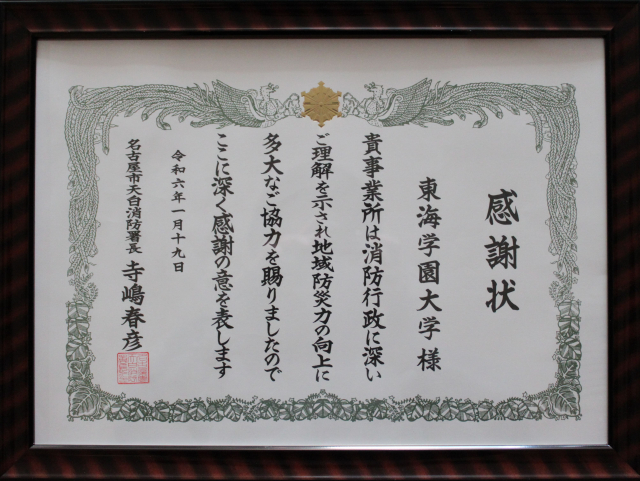 感謝状
東海学園大学 様
貴事業所は消防行政に深い
ご理解を示され地域防災力の向上に
多大なご協力を賜りましたので
ここに深く感謝の意を表します
令和六年一月十九日
名古屋市天白消防署長 寺嶋春彦